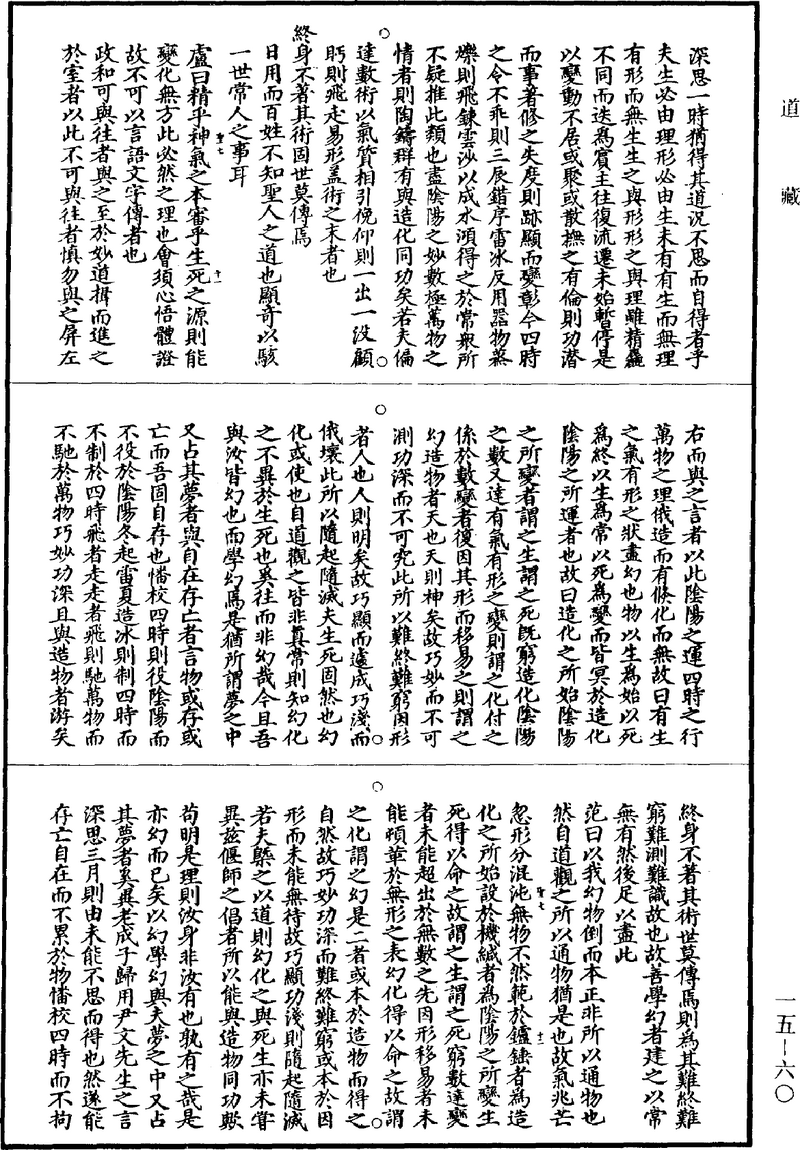 道藏
一五—六〇
深思一時猶得其道況不思而自得者乎
夫生必由理形必由生未有有生而無理
有形而無生生之與形形之與理雖精麤
不同而迭為賓主往復流遷未始暫停是
以變動不居或聚或散撫之有倫則功潛
而事著修之失度則跡顯而變彰今四時
之令不乖則三辰錯序雷冰反用器物蒸
爍則飛鍊雲沙以成水澒得之於常衆所
不疑推此類也盡陰陽之妙數極萬物之
情者則陶鑄群有與造化同功矣若夫偏
達數術以氣質相引俛仰則一出一没顧
眄則飛走易形盖術之末者也
終身不著其術固世莫傳焉
日用而百姓不知聖人之道也顯奇以駭
一世常人之事耳
盧曰精乎神氣之本審乎生死之源則能
變化無方此必然之理也會須心悟體證
故不可以言語文字傳者也
政和可與往者與之至於妙道揖而進之
於室者以此不可與往者慎勿與之屏左
右而與之言者以此陰陽之運四時之行
萬物之理俄造而有倏化而無故曰有生
之氣有形之狀盡幻也物以生為始以死
為終以生為常以死為變而皆冥於造化
陰陽之所運者也故曰造化之所始陰陽
之所變者謂之生謂之死既窮造化陰陽
之數又達有氣有形之變則謂之化付之
係於數變者復因其形而移易之則謂之
幻造物者天也天則神矣故巧妙而不可
測功深而不可究此所以難終難窮因形
者人也人則明矣故巧顯而遽成巧淺而
俄壞此所以隨起隨滅夫生死固然也幻
化或使也自道觀之皆非真常則知幻化
之不異於生死也奚往而非幻哉今且吾
與汝皆幻也而學幻焉是猶所謂夢之中
又占其夢者與自在存亡者言物或存或
亡而吾固自存也憣校四時則役陰陽而
不役於陰陽冬起雷夏造冰則制四時而
不制於四時飛者走走者飛則馳萬物而
不馳於萬物巧妙功深且與造物者游矣
終身不著其術世莫傳焉則為其難終難
窮難測難識故也故善學幻者建之以常
無有然後足以盡此
范曰以我幻物倒而本正非所以通物也
然自道觀之所以通物猶是也故氣兆芒
忽形分混沌無物不然範於鑪錘者為造
化之所始設於機緘者為陰陽之所變生
死得以命之故謂之生謂之死窮數達變
者未能超出於無數之先因形移易者未
能頓革於無形之表幻化得以命之故謂
之化謂之幻是二者或本於造物而得之
自然故巧妙功深而難終難窮或本於因
形而未能無待故巧顯功淺則隨起隨滅
若夫槩之以道則幻化之與死生亦未甞
異茲偃師之倡者所以能與造物同功歟
苟明是理則汝身非汝有也孰有之哉是
亦幻而已矣以幻學幻與夫夢之中又占
其夢者奚異老成子歸用尹文先生之言
深思三月則由未能不思而得也然遂能
存亡自在而不累於物憣校四時而不拘